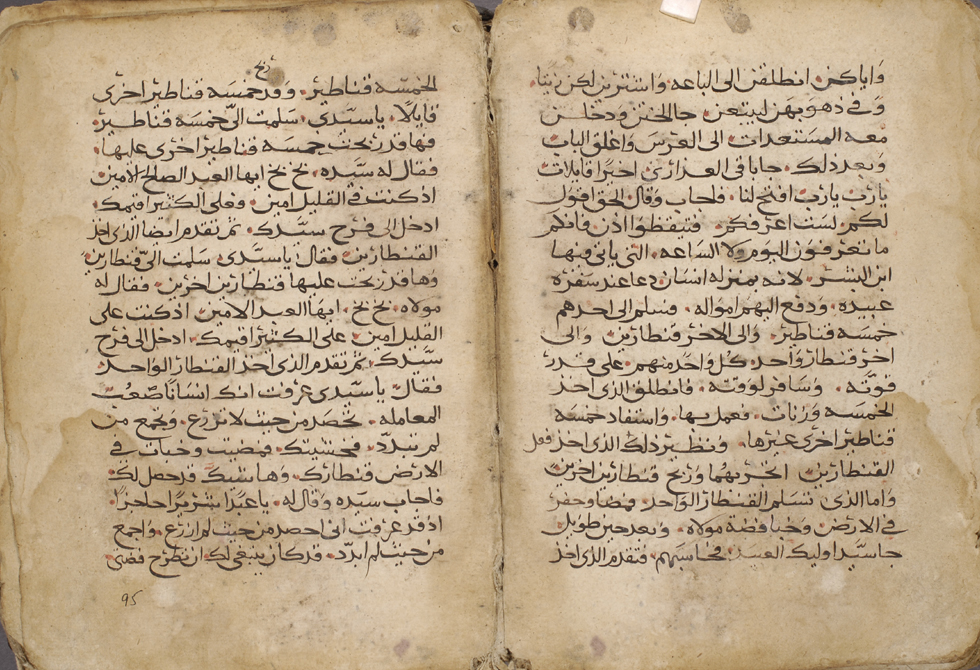 واياكن. انطلقن الى الباعه. واشترين لكن زيتا
وفى ذهوبهن ليبتعن. جا الختن ودخلن
معه المستعدات الى العرس واغلق الباب
وبعد ذلك. جا باقى العذارى اخيرًا قايلات
يارب يارب افتح لنا. فاجاب وقال الحق اقول
لكم. لست اعرفكن. فتيقظوا اذن فانكم
ما تعرفون اليوم ولا الساعه. التى ياتى فيها
ابن البشر. لانه بمنزله انسان دعا عند سفره
عبيده. ودفع اليهم امواله. فسلم الى احدهم
خمسه قناطير. والى الاخر قنطارين. والى
اخر قنطارًا واحد. كل واحد منهم. على قدر
قوته. وسافر لوقته. فانطلق الذى اخذ
الخمسه وزنات. فعمل بها. واستفاد خمسه
قناطير اخرى غيرها. ونظير ذلك الذى اخذ فعل
القنطارين. اتجر بهما وربح قنطارين اخرين
واما الذى تسلم القنطار الواحد. فمضا وحفر
فى الارض. وخبا فضة مولاه. وبعد حين طويل
جا سيد اوليك العبيد. فحاسبهم. فتقدم الذى اخذ
ربح
الخمسه قناطير. وقد خمسه قناطير اخرى
قايلا. ياسيدى. سلمت الىّ خمسه قناطير.
فها قد ربحت خمسه قناطير اخرى عليها.
فقال له سيده. بخ بخ ايها العبد الصالح الامين
اذ كنت فى القليل امين. وعلى الكثير اقيمك.
ادخل الى فرح سيدك. ثم تقدم ايضا الذى اخذ
القنطارين. فقال ياسيدى سلمت الىّ قنطارين
وها قد ربحت عليها قنطارين اخرين. فقال له
مولاه. بخ بخ. ايها العبد الامين. اذ كنت على
القليل امين. على الكثير اقيمك. ادخل الى فرح
سيدك. ثم تقدم الذى اخذ القنطار الواحد.
فقال ياسيدى عرفت انك انسانًا صعبُ
المعامله. تحصد من حيث لا تزرع. وتجمع من
لم تبدّد. فخشيتك. فمضيت وخبات فى
الارض قنطارك. وها شيك قد حصل لك.
فاجاب سيده وقال له. ياعبدًا شريرًا عاجزًا.
اذ قد عرفت انى احصد من حيث لم ازرع. واجمع
من حيث لم ابدّد. قد كان ينبغى لك ان تطرح فضتى
95